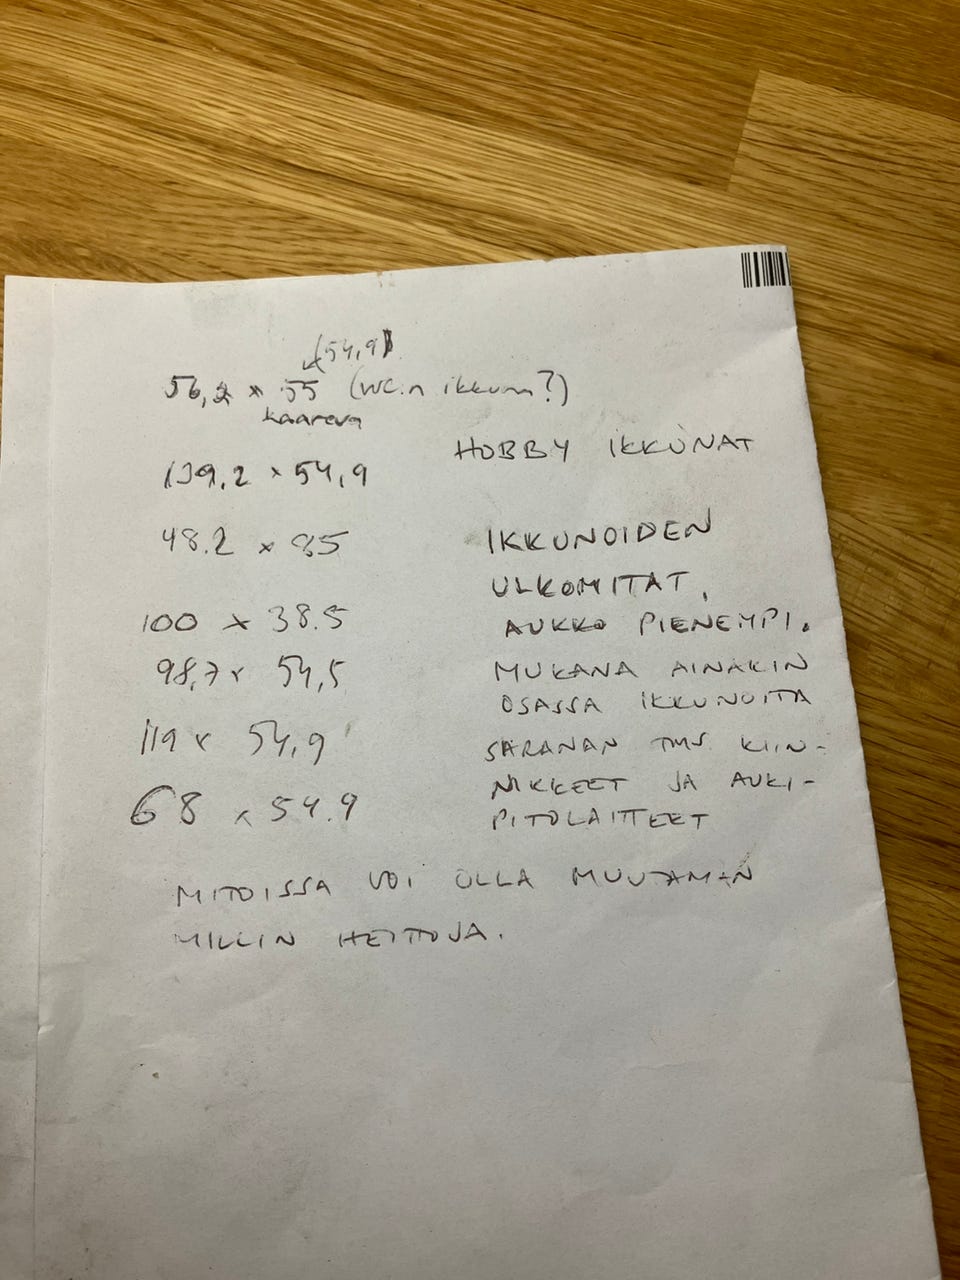 (54,9)
56,2 x 55 (WC:n ikkuna?)
kaareva
HOBBY IKKUNAT
139,2 x 54,9
48.2 x 85
IKKUNOIDEN
ULKOMITAT,
100 x 38.5
AUKKO PIENEMPI.
98,7 x 54,5
MUKANA AINAKIN
OSASSA IKKUNOITA
119 x 54,9
SARANAN TMS. KIIN-
NIKKEET JA AUKI-
68 x 54.9
PITOLAITTEET
MITOISSA VOI OLLA MUUTAMAN
MILLIN HEITTOJA.